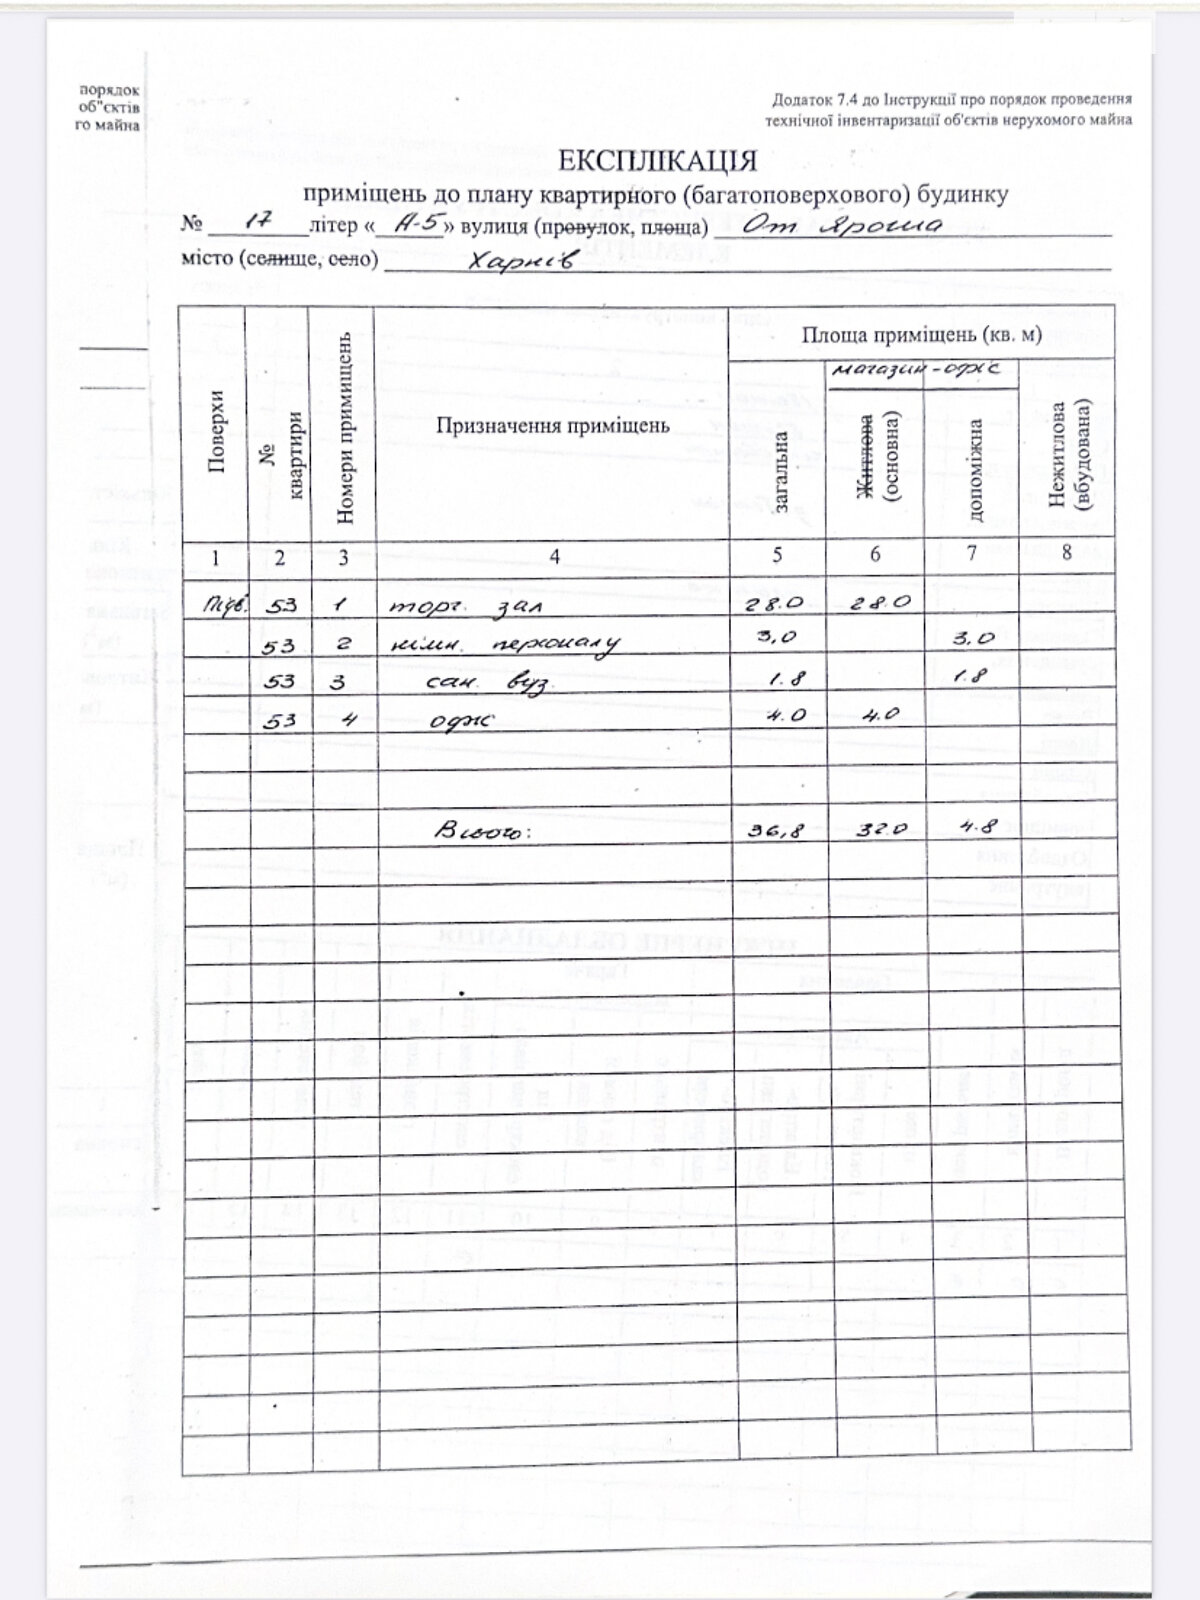 порядок
об"єктів
го майна
Додаток 7.4 до Інструкції про порядок проведення
технічної інвентаризації об'єктів нерухомого майна
ЕКСПЛІКАЦІЯ
приміщень до плану квартирного (багатоповерхового) будинку
№ 17 літер « А-5 » вулиця (провулок, площа) От Яроша
місто (селище, село) Харків
Поверхи
№ квартири
Номери примищень
Призначення приміщень
Площа приміщень (кв. м)
магазин-офіс
загальна
Житлова (основна)
допоміжна
Нежитлова (вбудована)
1 2 3 4 5 6 7 8
Підв. 53 1 торг. зал 28.0 28.0
53 2 кімн. персоналу 3,0 3.0
53 3 сан. вуз. 1.8 1.8
53 4 офіс 4.0 4.0
Всього: 36,8 32.0 4.8